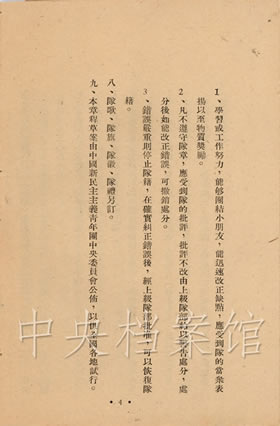 1、學習或工作努力，能够團結小朋友，能迅速改正缺點，應受到隊的當衆表
揚以至物質獎勵。
2、凡不遵守隊章，應受到隊的批評，批評不改由上級隊部給以警告處分，處
分後如能改正錯誤，可撤銷處分。
3、錯誤嚴重則停止隊籍，在確實糾正錯誤後，經上級隊部批准，可以恢復隊
籍。
八、隊歌、隊旗、隊徽、隊禮另訂。
九、本章程草案由中國新民主主義青年團中央委員會公佈，以供全國各地試行。
• 4 •
中央档案馆